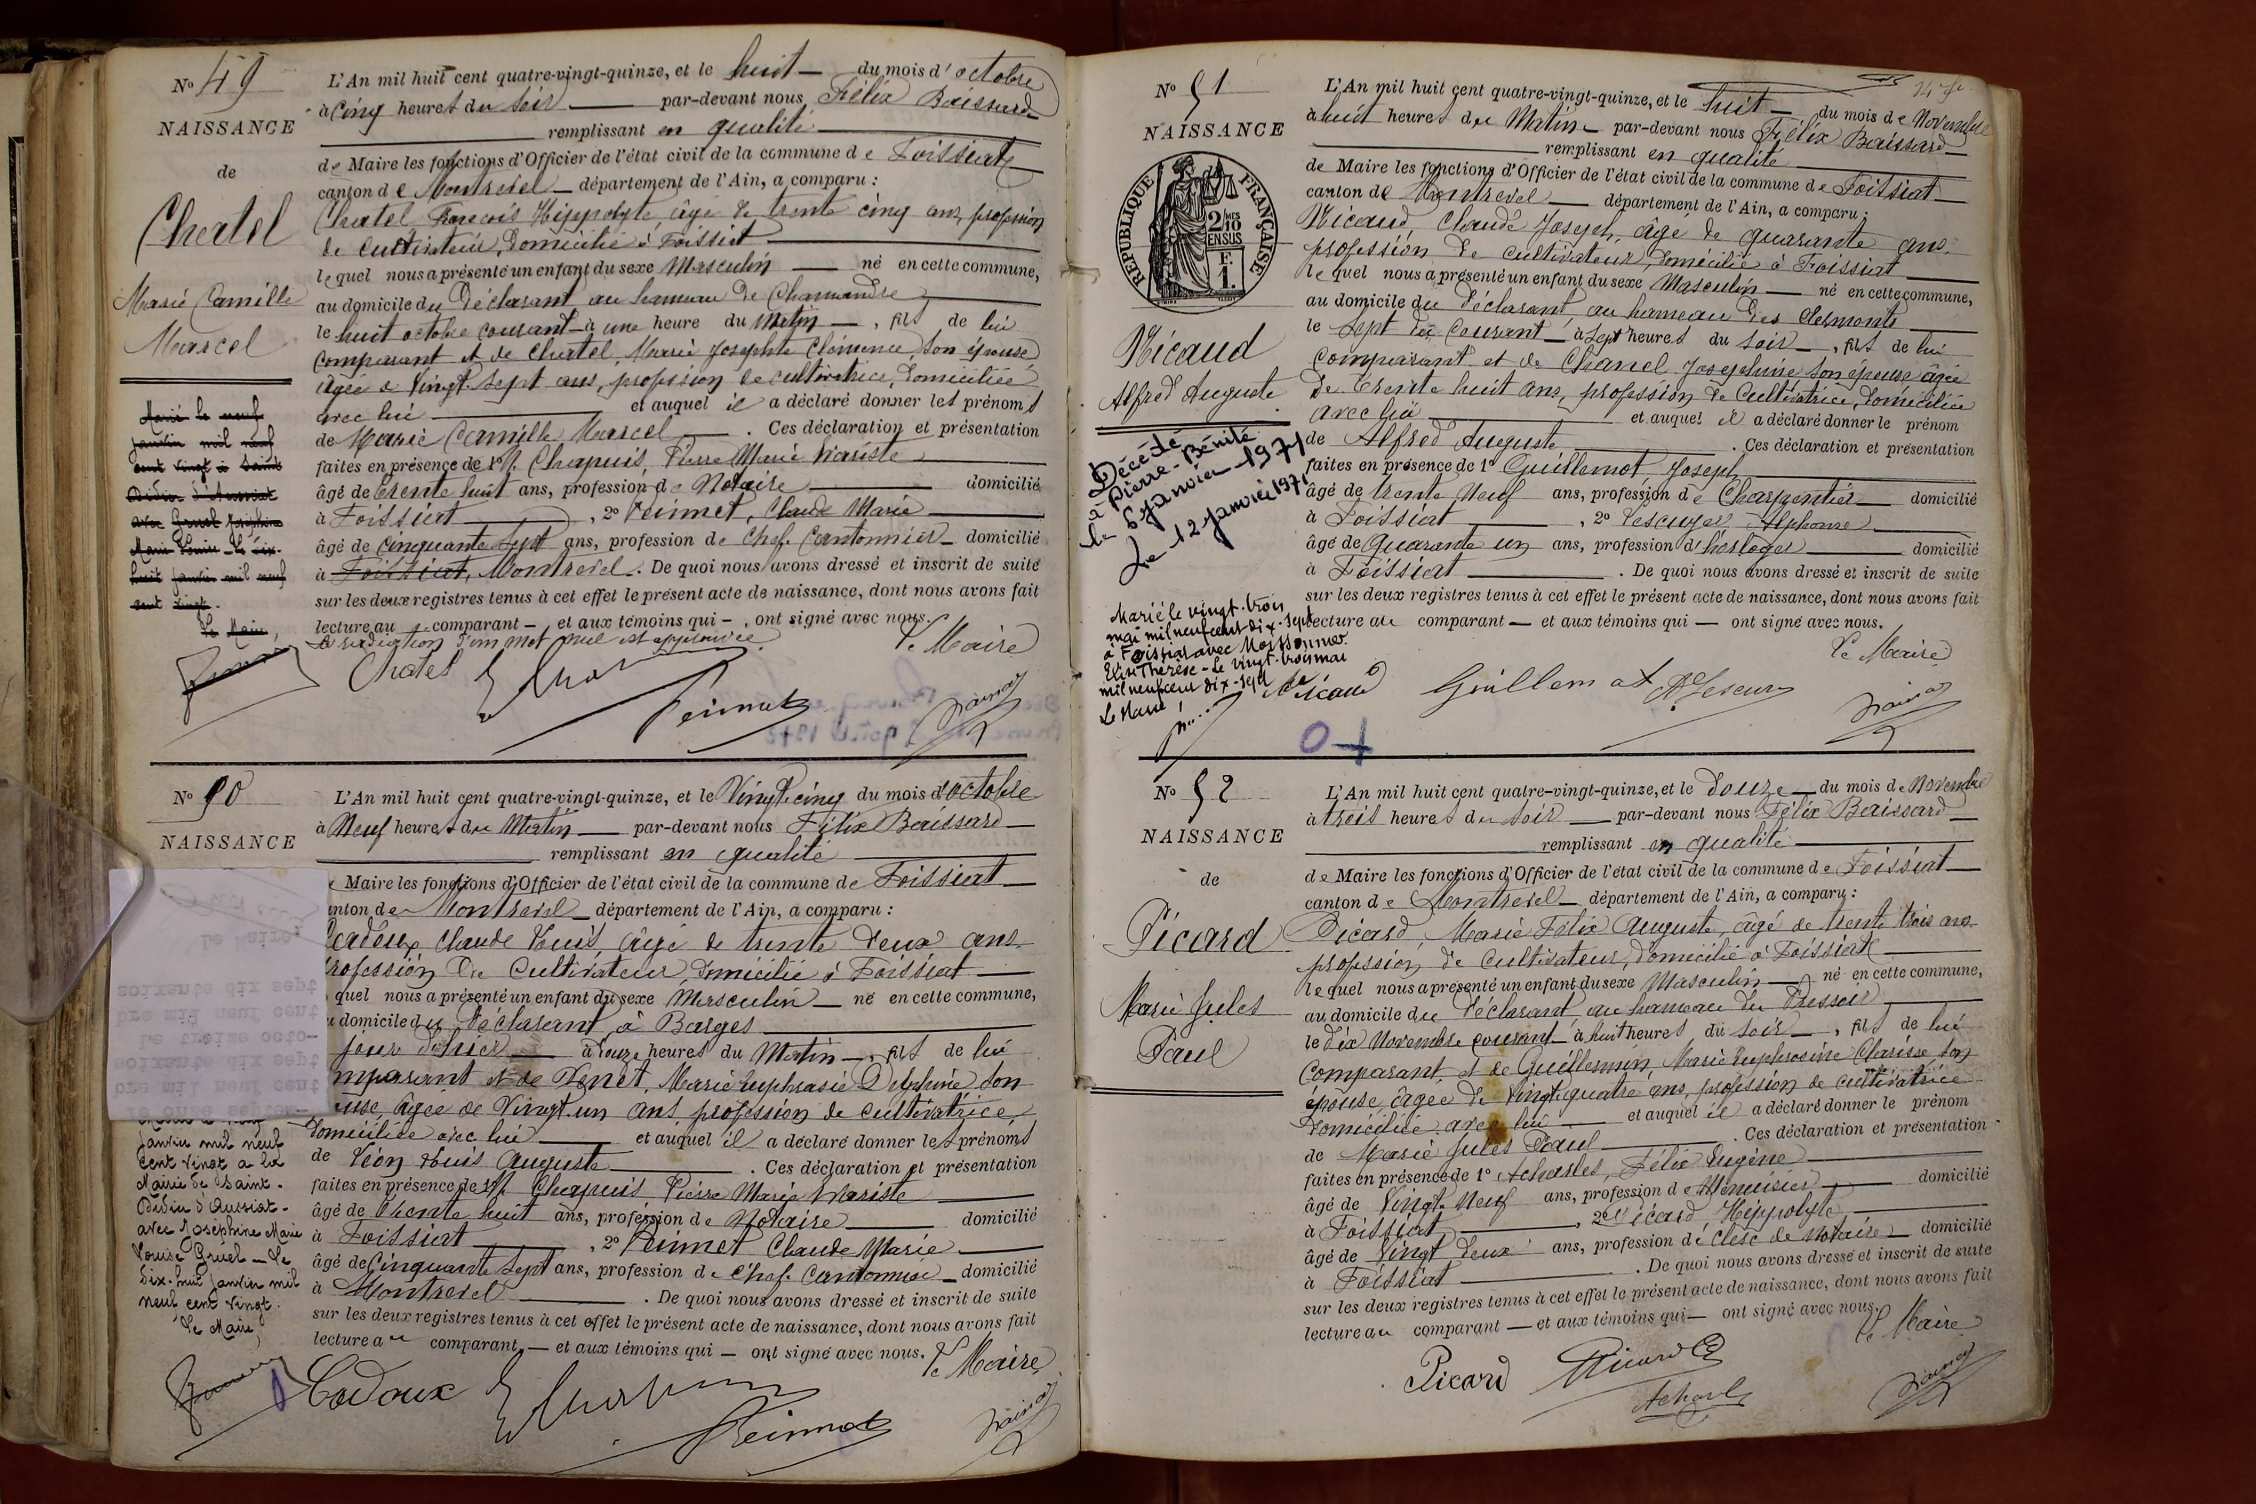 No 49
NAISSANCE
de
Chatel
Marie Camille
Marcel
Marié le neuf
janvier mil neuf
cent vingt à Saint
Didier d'Aussiat
avec Gruel Joséphine
Marie Louise - Le dix-
huit janvier mil neuf
cent vingt.
Le Maire,
L'An mil huit cent quatre-vingt-quinze, et le huit du mois d'octobre
à cinq heures du soir par-devant nous Félix Baissard
remplissant en qualité
de Maire les fonctions d'Officier de l'état civil de la commune de Foissiat
canton de Montrevel département de l'Ain, a comparu :
Chatel François Hippolyte âgé de trente cinq ans, profession
de cultivateur, domicilié à Foissiat
lequel nous a présenté un enfant du sexe Masculin né en cette commune,
au domicile du Déclarant au hameau de Chamandre
le huit octobre courant à une heure du Matin, fils de lui
comparant et de Chatel, Marie Josephte Clémence, son épouse
âgée de vingt-sept ans, profession de cultivatrice, domiciliée
avec lui et auquel il a déclaré donner les prénoms
de Marie Camille Marcel. Ces déclaration et présentation
faites en présence de 1° M. Chapuis, Pierre Marie Variste
âgé de trente huit ans, profession de Notaire domicilié
à Foissiat, 2° Peinnet, Claude Marie
âgé de cinquante sept ans, profession de Chef Cantonnier domicilié
à Foissiat, Montrevel. De quoi nous avons dressé et inscrit de suite
sur les deux registres tenus à cet effet le présent acte de naissance, dont nous avons fait
lecture au comparant - et aux témoins qui -, ont signé avec nous.
La radiation d'un mot nul est approuvée. Le Maire
Chatel Peinnet
No 50
NAISSANCE
Le Maire,
soixante dix sept
bre mil neuf cent
Le treize octo-
soixante dix sept
bre mil neuf cent
re onze septem-
janvier mil neuf
cent vingt a la
Mairie de Saint-
Didier d'Aussiat-
avec Joséphine Marie
Louise Gruel - Le
dix-huit janvier mil
neuf cent vingt.
Le Maire,
L'An mil huit cent quatre-vingt-quinze, et le Vingt cinq du mois d'octobre
à Neuf heures du Matin par-devant nous Félix Baissard
remplissant en qualité
Maire les fonctions d'Officier de l'état civil de la commune de Foissiat
anton de Montrevel département de l'Ain, a comparu :
Cadoux Claude Louis, âgé de trente deux ans
profession de Cultivateur, domicilié à Foissiat
quel nous a présenté un enfant du sexe Masculin né en cette commune,
domicile du Déclarant, à Barges
jour d'hier à douze heures du Matin, fils de lui
mparant et de Venet, Marie Euphrasie Delphine son
ouse, âgée de Vingt un ans, profession de cultivatrice,
domiciliée avec lui et auquel il a déclaré donner les prénoms
de Léon Louis Auguste. Ces déclaration et présentation
faites en présence de M. Chapuis, Pierre Marie Variste
âgé de trente huit ans, profession de Notaire domicilié
à Foissiat, 2° Peinnet Claude Marie
âgé de Cinquante Sept ans, profession de Chef Cantonnier domicilié
à Montrevel. De quoi nous avons dressé et inscrit de suite
sur les deux registres tenus à cet effet le présent acte de naissance, dont nous avons fait
lecture au comparant, - et aux témoins qui - ont signé avec nous. Le Maire
Cadoux Peinnet
No 51
NAISSANCE
RÉPUBLIQUE FRANÇAISE
2/10 MES
EN SUS
F.
1.
Micaud
Alfred Auguste
Décédé
à Pierre-Bénite
le 6 janvier 1971
Le 12 janvier 1971
Marié le vingt-trois
mai mil neuf cent dix-sept
à Foissiat avec
Elise Thérèse - Le vingt-trois mai
mil neuf cent dix-sept
Le Maire,
L'An mil huit cent quatre-vingt-quinze, et le huit du mois de Novembre
à huit heures du Matin par-devant nous Félix Baissard
remplissant en qualité
de Maire les fonctions d'Officier de l'état civil de la commune de Foissiat
canton de Montrevel département de l'Ain, a comparu :
Micaud, Claude Joseph, âgé de quarante ans
profession de cultivateur, domicilié à Foissiat
lequel nous a présenté un enfant du sexe Masculin né en cette commune,
au domicile du déclarant, au hameau des Clermonts
le Sept du Courant à sept heures du soir, fils de lui
comparant et de Chanel Josephine son épouse âgée
de trente huit ans, profession de Cultivatrice, domiciliée
avec lui et auquel il a déclaré donner le prénom
de Alfred Auguste. Ces déclaration et présentation
faites en présence de 1° Guillemot Joseph
âgé de trente Neuf ans, profession de Charpentier domicilié
à Foissiat, 2° Lescuyer Alphonse
âgé de Quarante un ans, profession d'horloger domicilié
à Foissiat. De quoi nous avons dressé et inscrit de suite
sur les deux registres tenus à cet effet le présent acte de naissance, dont nous avons fait
lecture au comparant - et aux témoins qui - ont signé avec nous.
Le Maire
Micaud Guillemot
No 52
NAISSANCE
de
Picard
Marie Jules
Paul
L'An mil huit cent quatre-vingt-quinze, et le douze du mois de Novembre
à trois heures du soir par-devant nous Félix Baissard
remplissant en qualité
de Maire les fonctions d'Officier de l'état civil de la commune de Foissiat
canton de Montrevel département de l'Ain, a comparu :
Picard, Marie Félix Auguste, âgé de trente trois ans
profession de cultivateur, domicilié à Foissiat
lequel nous a présenté un enfant du sexe Masculin né en cette commune,
au domicile du déclarant, au hameau du Pressoir
le dix Novembre courant à huit heures du soir, fils de lui
comparant, et de Guillermin, Marie Euphrosine Clarisse son
épouse, âgée de vingt quatre ans, profession de cultivatrice
domiciliée avec lui et auquel il a déclaré donner le prénom
de Marie Jules Paul. Ces déclaration et présentation
faites en présence de 1° Acharles, Félix Eugène
âgé de Vingt-Neuf ans, profession de Menuisier domicilié
à Foissiat, 2° Picard Hippolyte
âgé de Vingt deux ans, profession de clerc de notaire domicilié
à Foissiat. De quoi nous avons dressé et inscrit de suite
sur les deux registres tenus à cet effet le présent acte de naissance, dont nous avons fait
lecture au comparant - et aux témoins qui - ont signé avec nous. Le Maire
Picard Picard